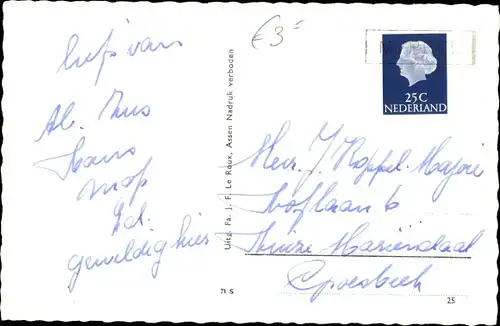 liefs van
Hans
mop
geweldig hier
€ 3=
Uitg. Fa. J. F. Le Roux, Assen Nadruk verboden
71 S
25 C
NEDERLAND
Mevr. J. Koppel-Majoie
Hoflaan 6
Huize Mariëndaal
Groesbeek
25